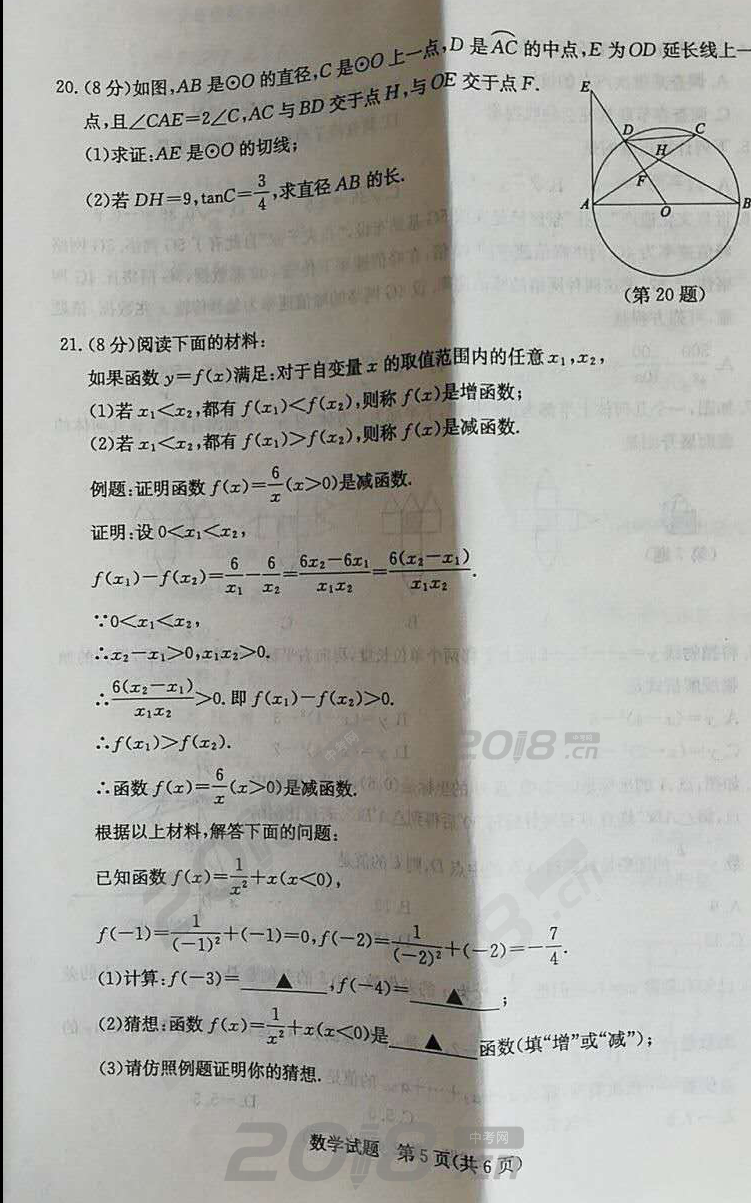 20.(8分)如图,AB是⊙O的直径,C是⊙O上一点,D是AC⌒的中点,E为OD延长线上一
点,且∠CAE=2∠C,AC与BD交于点H,与OE交于点F.
(1)求证:AE是⊙O的切线;
(2)若DH=9,tanC=3/4,求直径AB的长.
E
D
C
H
F
A
O
B
(第20题)
21.(8分)阅读下面的材料:
如果函数y=f(x)满足:对于自变量x的取值范围内的任意x₁,x₂,
(1)若x₁<x₂,都有f(x₁)<f(x₂),则称f(x)是增函数;
(2)若x₁<x₂,都有f(x₁)>f(x₂),则称f(x)是减函数.
例题:证明函数f(x)=6/x(x>0)是减函数.
证明:设0<x₁<x₂,
f(x₁)-f(x₂)=6/x₁-6/x₂=(6x₂-6x₁)/(x₁x₂)=6(x₂-x₁)/(x₁x₂).
∵0<x₁<x₂,
∴x₂-x₁>0,x₁x₂>0.
∴6(x₂-x₁)/(x₁x₂)>0.即f(x₁)-f(x₂)>0.
∴f(x₁)>f(x₂).
∴函数f(x)=6/x(x>0)是减函数.
根据以上材料,解答下面的问题:
已知函数f(x)=1/x²+x(x<0),
f(-1)=1/(-1)²+(-1)=0,f(-2)=1/(-2)²+(-2)=-7/4.
(1)计算:f(-3)=▲,f(-4)=▲;
(2)猜想:函数f(x)=1/x²+x(x<0)是▲函数(填“增”或“减”);
(3)请仿照例题证明你的猜想.
数学试题 第5页(共6页)
中考网
2018.cn